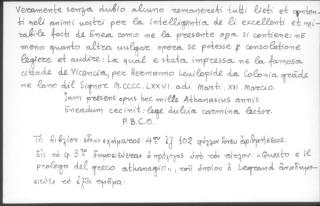 Veramente senza dubio alcuno remanereti tutti lieti et conten-
ti neli animi vostri per la intelligentia de li excellenti et mi-
rabile facti de Enea como ne la presente opa si contiene: nè
meno quanto altra vulgar opera se potesse p consolatione
legiere et audire: La qual e stata impressa ne la famosa
cittade de Vicencia, per Hermanno Levilapide da Colonia grāde
ne lano dil Signor M.CCCC.LXXVI. adi Marti. XII. Marcio.
Iam presens opus hec mille Athanasius annis
Eneadum cecinit: lege dulcia carmina lector.
P.B.C.O.
Τὸ βιβλίον εἶναι σχήματος 4ου ἐξ 102 φύλλων ἄνευ ἀριθμήσεως.
Εἰς τὸ φ. 3 δημοσιεύεται ὁ πρόλογος ὑπὸ τὸν τίτλον: «Questo e il
prologo del greco athanagio», τοῦ ὁποίου ὁ Legrand ἀναδημο-
σιεύει τὸ ἑξῆς τμῆμα: